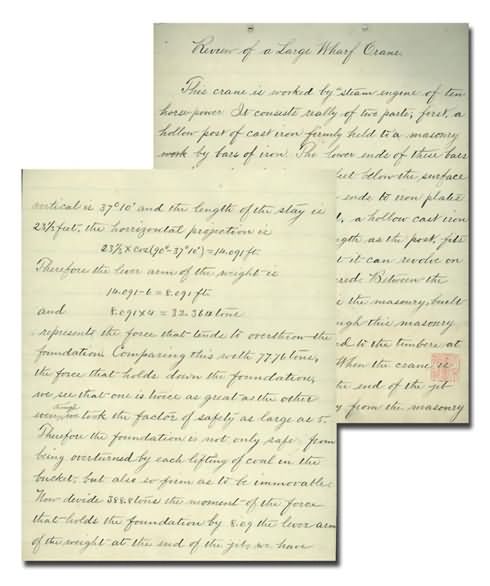 Review of a Large Wharf Crane.
This crane is worked by steam engine of ten
horse-power. It consists really of two parts, first, a
hollow post of cast iron firmly held to a masonry
work by bars of iron. The lower ends of these bars
feet below the surface
ends to iron plates
a hollow cast iron
as the post, fits
it can revolve on
Between the
the masonry, built
this masonry
to the timbers at
When the crane is
the end of the jib
from the masonry
vertical is 37°10' and the length of the stay is
23½ feet, the horrizontal projection is
23½ × cos(90°-37°10') = 14.091 ft.
Therefore the lever arm of the weight is
14.091-6 = 8.091 ft.
and 8.091×4 = 32.364 tons
represents the force that tends to overthrow the
foundation. Comparing this with 77.76 tons,
the force that holds down the foundation,
we see that one is twice as great as the other
even though we took the factor of safety as large as 5.
Therfore the foundation is not only safe from
being overturned by each lifting of coal in the
bucket, but also so firm as to be immovable.
Now devide 388.8 tons the moment of the force
that holds the foundation by 8.09 the lever arm
of the weight at the end of the jib, we have